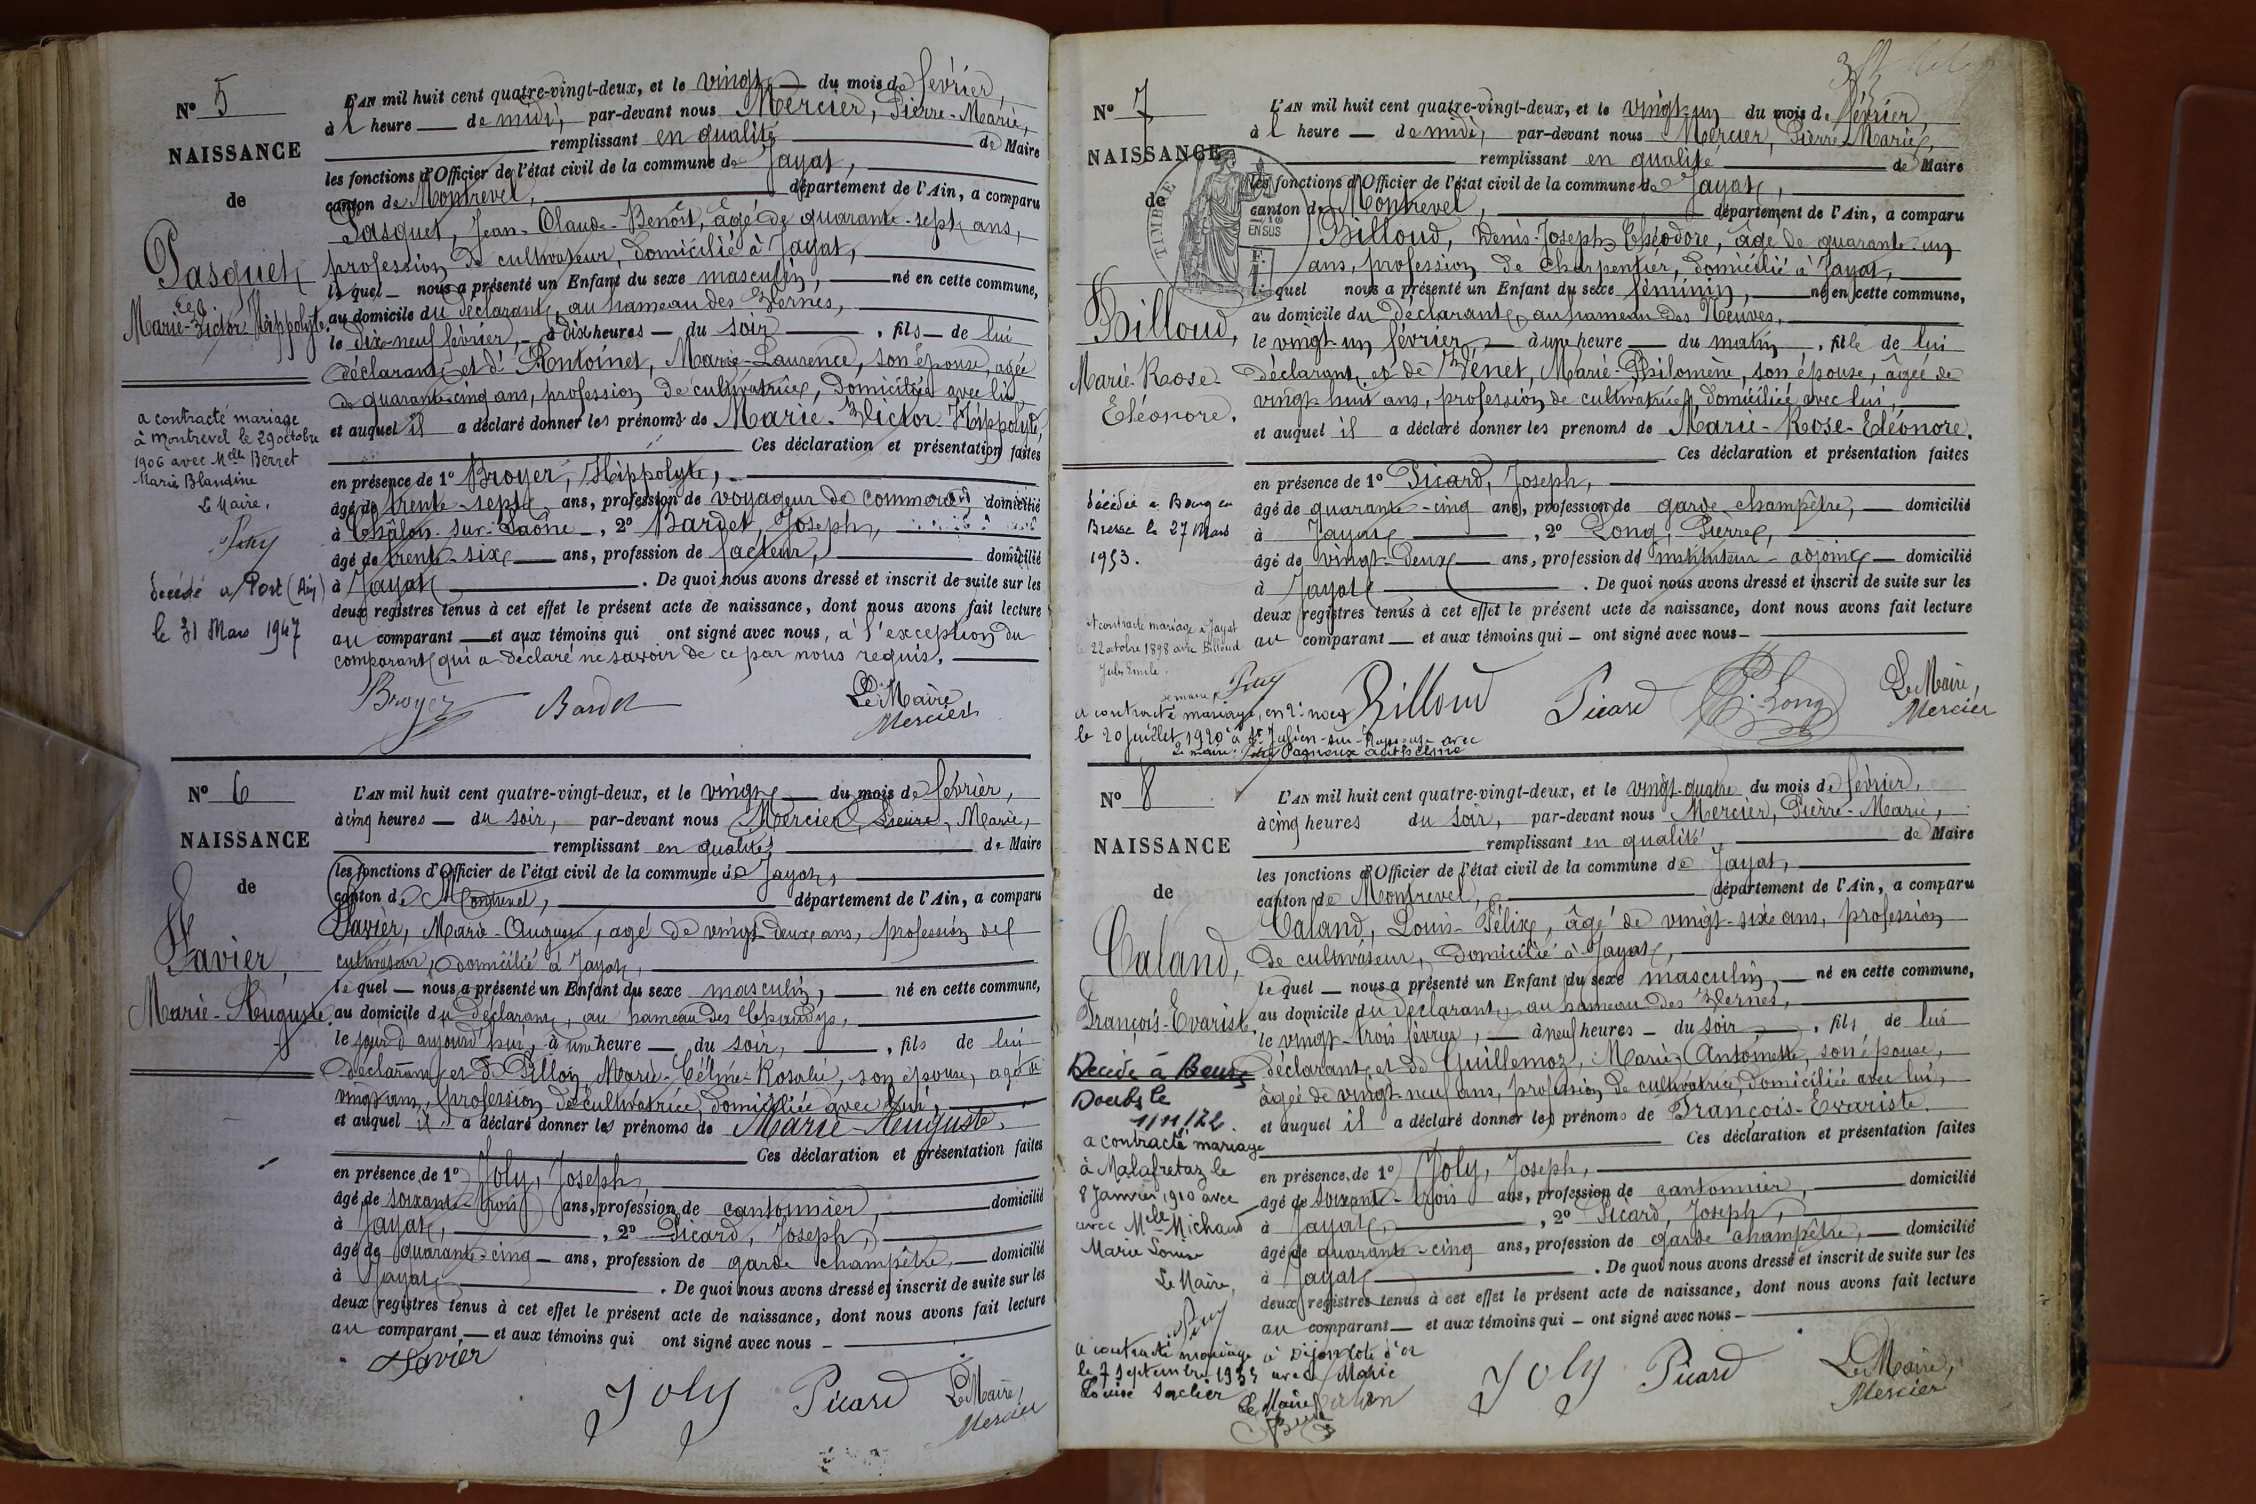 N° 5
NAISSANCE
de
Pasquet
Marie-Victor-Hippolyte.
a contracté mariage
à Montrevel le 29 octobre
1906 avec Melle Berret
Marie Blandine
Le Maire,
décédé à Port (Ain)
le 31 Mars 1947
L'AN mil huit cent quatre-vingt-deux, et le vingt du mois de février,
à 1 heure de midi, par-devant nous Mercier, Pierre-Marie,
remplissant en qualité de Maire
les fonctions d'Officier de l'état civil de la commune de Jayat,
canton de Montrevel, département de l'Ain, a comparu
Pasquet, Jean-Claude-Benoît, âgé de quarante-sept ans,
profession de cultivateur, domicilié à Jayat,
le quel nous a présenté un Enfant du sexe masculin, né en cette commune,
au domicile du déclarant, au hameau des Vernes,
le dix-neuf février, à dix heures du soir, fils de lui
déclarant et d' Antoinet, Marie-Laurence, son épouse, agée
de quarante-cinq ans, profession de cultivatrice, domiciliée avec lui,
et auquel il a déclaré donner les prénoms de Marie-Victor-Hippolyte,
Ces déclaration et présentation faites
en présence de 1° Broyer, Hippolyte,
âgé de trente-sept ans, profession de voyageur de commerce, domicilié
à Châlon-sur-Saône, 2° Bardet, Joseph,
âgé de trente-six ans, profession de facteur, domicilié
à Jayat. De quoi nous avons dressé et inscrit de suite sur les
deux registres tenus à cet effet le présent acte de naissance, dont nous avons fait lecture
au comparant et aux témoins qui ont signé avec nous, à l'exception du
comparant qui a déclaré ne savoir de ce par nous requis.
Broyer Bardet Le Maire,
Mercier
N° 6
NAISSANCE
de
Favier,
Marie-Auguste.
L'AN mil huit cent quatre-vingt-deux, et le vingt du mois de février,
à cinq heures du soir, par-devant nous Mercier, Pierre, Marie,
remplissant en qualité de Maire
les fonctions d'Officier de l'état civil de la commune de Jayat,
canton de Montrevel, département de l'Ain, a comparu
Favier, Marie-Auguste, agé de vingt-deux ans, profession de
cultivateur, domicilié à Jayat,
le quel nous a présenté un Enfant du sexe masculin, né en cette commune,
au domicile du déclarant, au hameau des
le jour d'aujourd'hui, à une heure du soir, fils de lui
déclarant et de Pillon, Marie-Céline-Rosalie, son épouse, agée de
vingt ans, profession de cultivatrice, domiciliée avec lui,
et auquel il a déclaré donner les prénoms de Marie-Auguste.
Ces déclaration et présentation faites
en présence de 1° Joly, Joseph,
âgé de soixante-trois ans, profession de cantonnier, domicilié
à Jayat, 2° Picard, Joseph,
âgé de quarante-cinq ans, profession de garde champêtre, domicilié
à Jayat. De quoi nous avons dressé et inscrit de suite sur les
deux registres tenus à cet effet le présent acte de naissance, dont nous avons fait lecture
au comparant, et aux témoins qui ont signé avec nous
Favier
Joly Picard Le Maire,
Mercier
N° 7
NAISSANCE
de
TIMBRE
Billoud,
Marie-Rose-
Eléonore.
décédée à Bourg en
Bresse le 27 Mars
1953.
A contracté mariage à Jayat
le 22 octobre 1898 avec Billoud
Jules Emile.
Le maire,
a contracté mariage, en 2e noces
le 20 juillet 1920 à St Julien-sur-Reyssouze avec
Pagneux Anthelme
L'AN mil huit cent quatre-vingt-deux, et le vingt-un du mois de février,
à 1 heure de midi, par-devant nous Mercier, Pierre-Marie,
remplissant en qualité de Maire
les fonctions d'Officier de l'état civil de la commune de Jayat,
canton de Montrevel, département de l'Ain, a comparu
Billoud, Denis-Joseph-Théodore, âgé de quarante-un
ans, profession de charpentier, domicilié à Jayat,
le quel nous a présenté un Enfant du sexe féminin, né en cette commune,
au domicile du déclarant, au hameau des Neuves,
le vingt-un février, à une heure du matin, fille de lui
déclarant, et de Venet, Marie-Philomène, son épouse, âgée de
vingt-huit ans, profession de cultivatrice, domiciliée avec lui,
et auquel il a déclaré donner les prénoms de Marie-Rose-Eléonore.
Ces déclaration et présentation faites
en présence de 1° Picard, Joseph,
âgé de quarante-cinq ans, profession de garde champêtre, domicilié
à Jayat, 2° Long, Pierre,
âgé de vingt-deux ans, profession de instituteur-adjoint domicilié
à Jayat. De quoi nous avons dressé et inscrit de suite sur les
deux registres tenus à cet effet le présent acte de naissance, dont nous avons fait lecture
au comparant et aux témoins qui ont signé avec nous
Billoud Picard P. Long Le Maire,
Mercier
N° 8
NAISSANCE
de
Caland,
François-Evariste.
Décédé à Beure
Doubs le
1/11/72
a contracté mariage
à Malafretaz le
8 Janvier 1910 avec
avec Melle Michaud
Marie Louise
Le Maire,
a contracté mariage à Dijon Côte d'or
le 7 septembre 1955 avec Marie
Louise Saclier Le Maire
L'AN mil huit cent quatre-vingt-deux, et le vingt-quatre du mois de février,
à cinq heures du soir, par-devant nous Mercier, Pierre-Marie,
remplissant en qualité de Maire
les fonctions d'Officier de l'état civil de la commune de Jayat,
canton de Montrevel, département de l'Ain, a comparu
Caland, Louis-Félix, âgé de vingt-six ans, profession
de cultivateur, domicilié à Jayat,
le quel nous a présenté un Enfant du sexe masculin, né en cette commune,
au domicile du déclarant, au hameau des Vernes,
le vingt-trois février, à neuf heures du soir, fils de lui
déclarant et de Guillemoz, Marie-Antoinette, son épouse,
âgée de vingt-neuf ans, profession de cultivatrice, domiciliée avec lui,
et auquel il a déclaré donner les prénoms de François-Evariste.
Ces déclaration et présentation faites
en présence de 1° Joly, Joseph,
âgé de soixante-trois ans, profession de cantonnier, domicilié
à Jayat, 2° Picard, Joseph,
âgé de quarante-cinq ans, profession de garde champêtre, domicilié
à Jayat. De quoi nous avons dressé et inscrit de suite sur les
deux registres tenus à cet effet le présent acte de naissance, dont nous avons fait lecture
au comparant et aux témoins qui ont signé avec nous
Joly Picard Le Maire,
Mercier